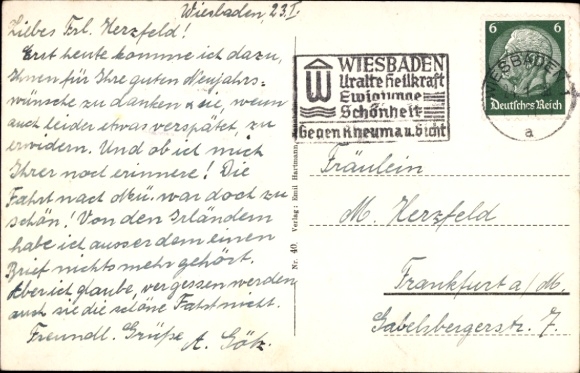 Wiesbaden, 23.I.
Liebes Frl. Herzfeld!
Erst heute komme ich dazu,
Ihnen für Ihre guten Neujahrs-
wünsche zu danken & sie, wenn
auch leider etwas verspätet, zu
erwidern. Und ob ich mich
Ihrer noch erinnere! Die
Fahrt nach Mü. war doch zu
schön! Von den Irländern
habe ich ausser dem einen
Brief nichts mehr gehört.
Aber ich glaube, vergessen werden
auch sie die schöne Fahrt nicht.
Freundl. Grüße A. Götz.
Nr. 40. Verlag: Emil Hartmann,
WIESBADEN
Uralte Heilkraft
Ewigjunge
Schönheit
Gegen Rheuma u. Gicht
6 6
Deutsches Reich
WIESBADEN 1
a
Fräulein
M. Herzfeld
Frankfurt a/M.
Gabelsbergerstr. 7.